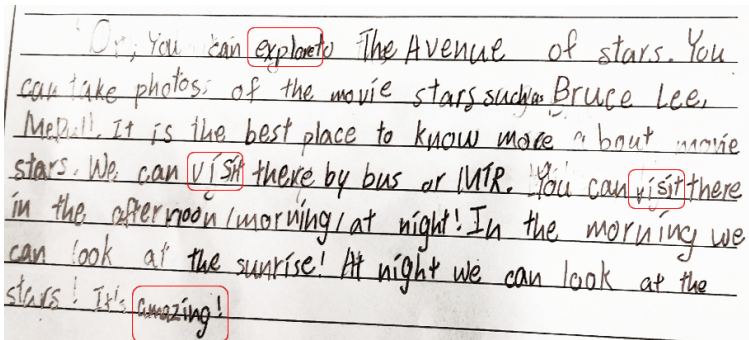 Or, You can explore to The Avenue of stars. You
can take photos of the movie stars such as Bruce Lee,
McDull. It is the best place to know more about movie
stars. We can visit there by bus or MTR. You can visit there
in the afternoon/morning/at night! In the morning we
can look at the sunrise! At night we can look at the
stars! It's amazing!